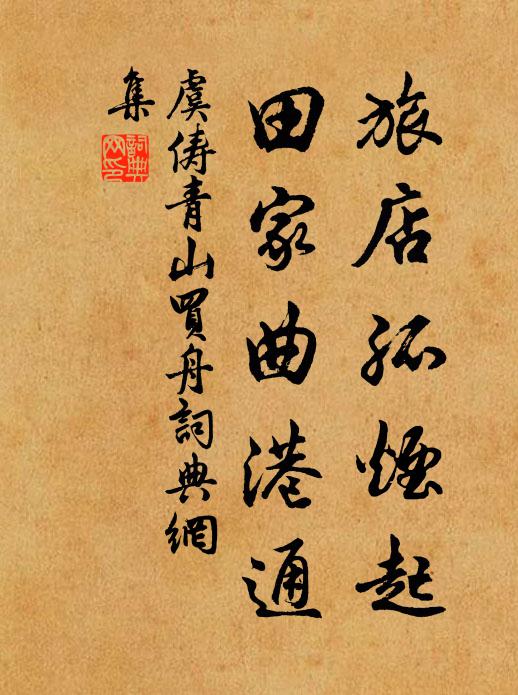 旅店孤煙起
田家曲港通
虞儔青山買舟詞典網
集
詞典
网印